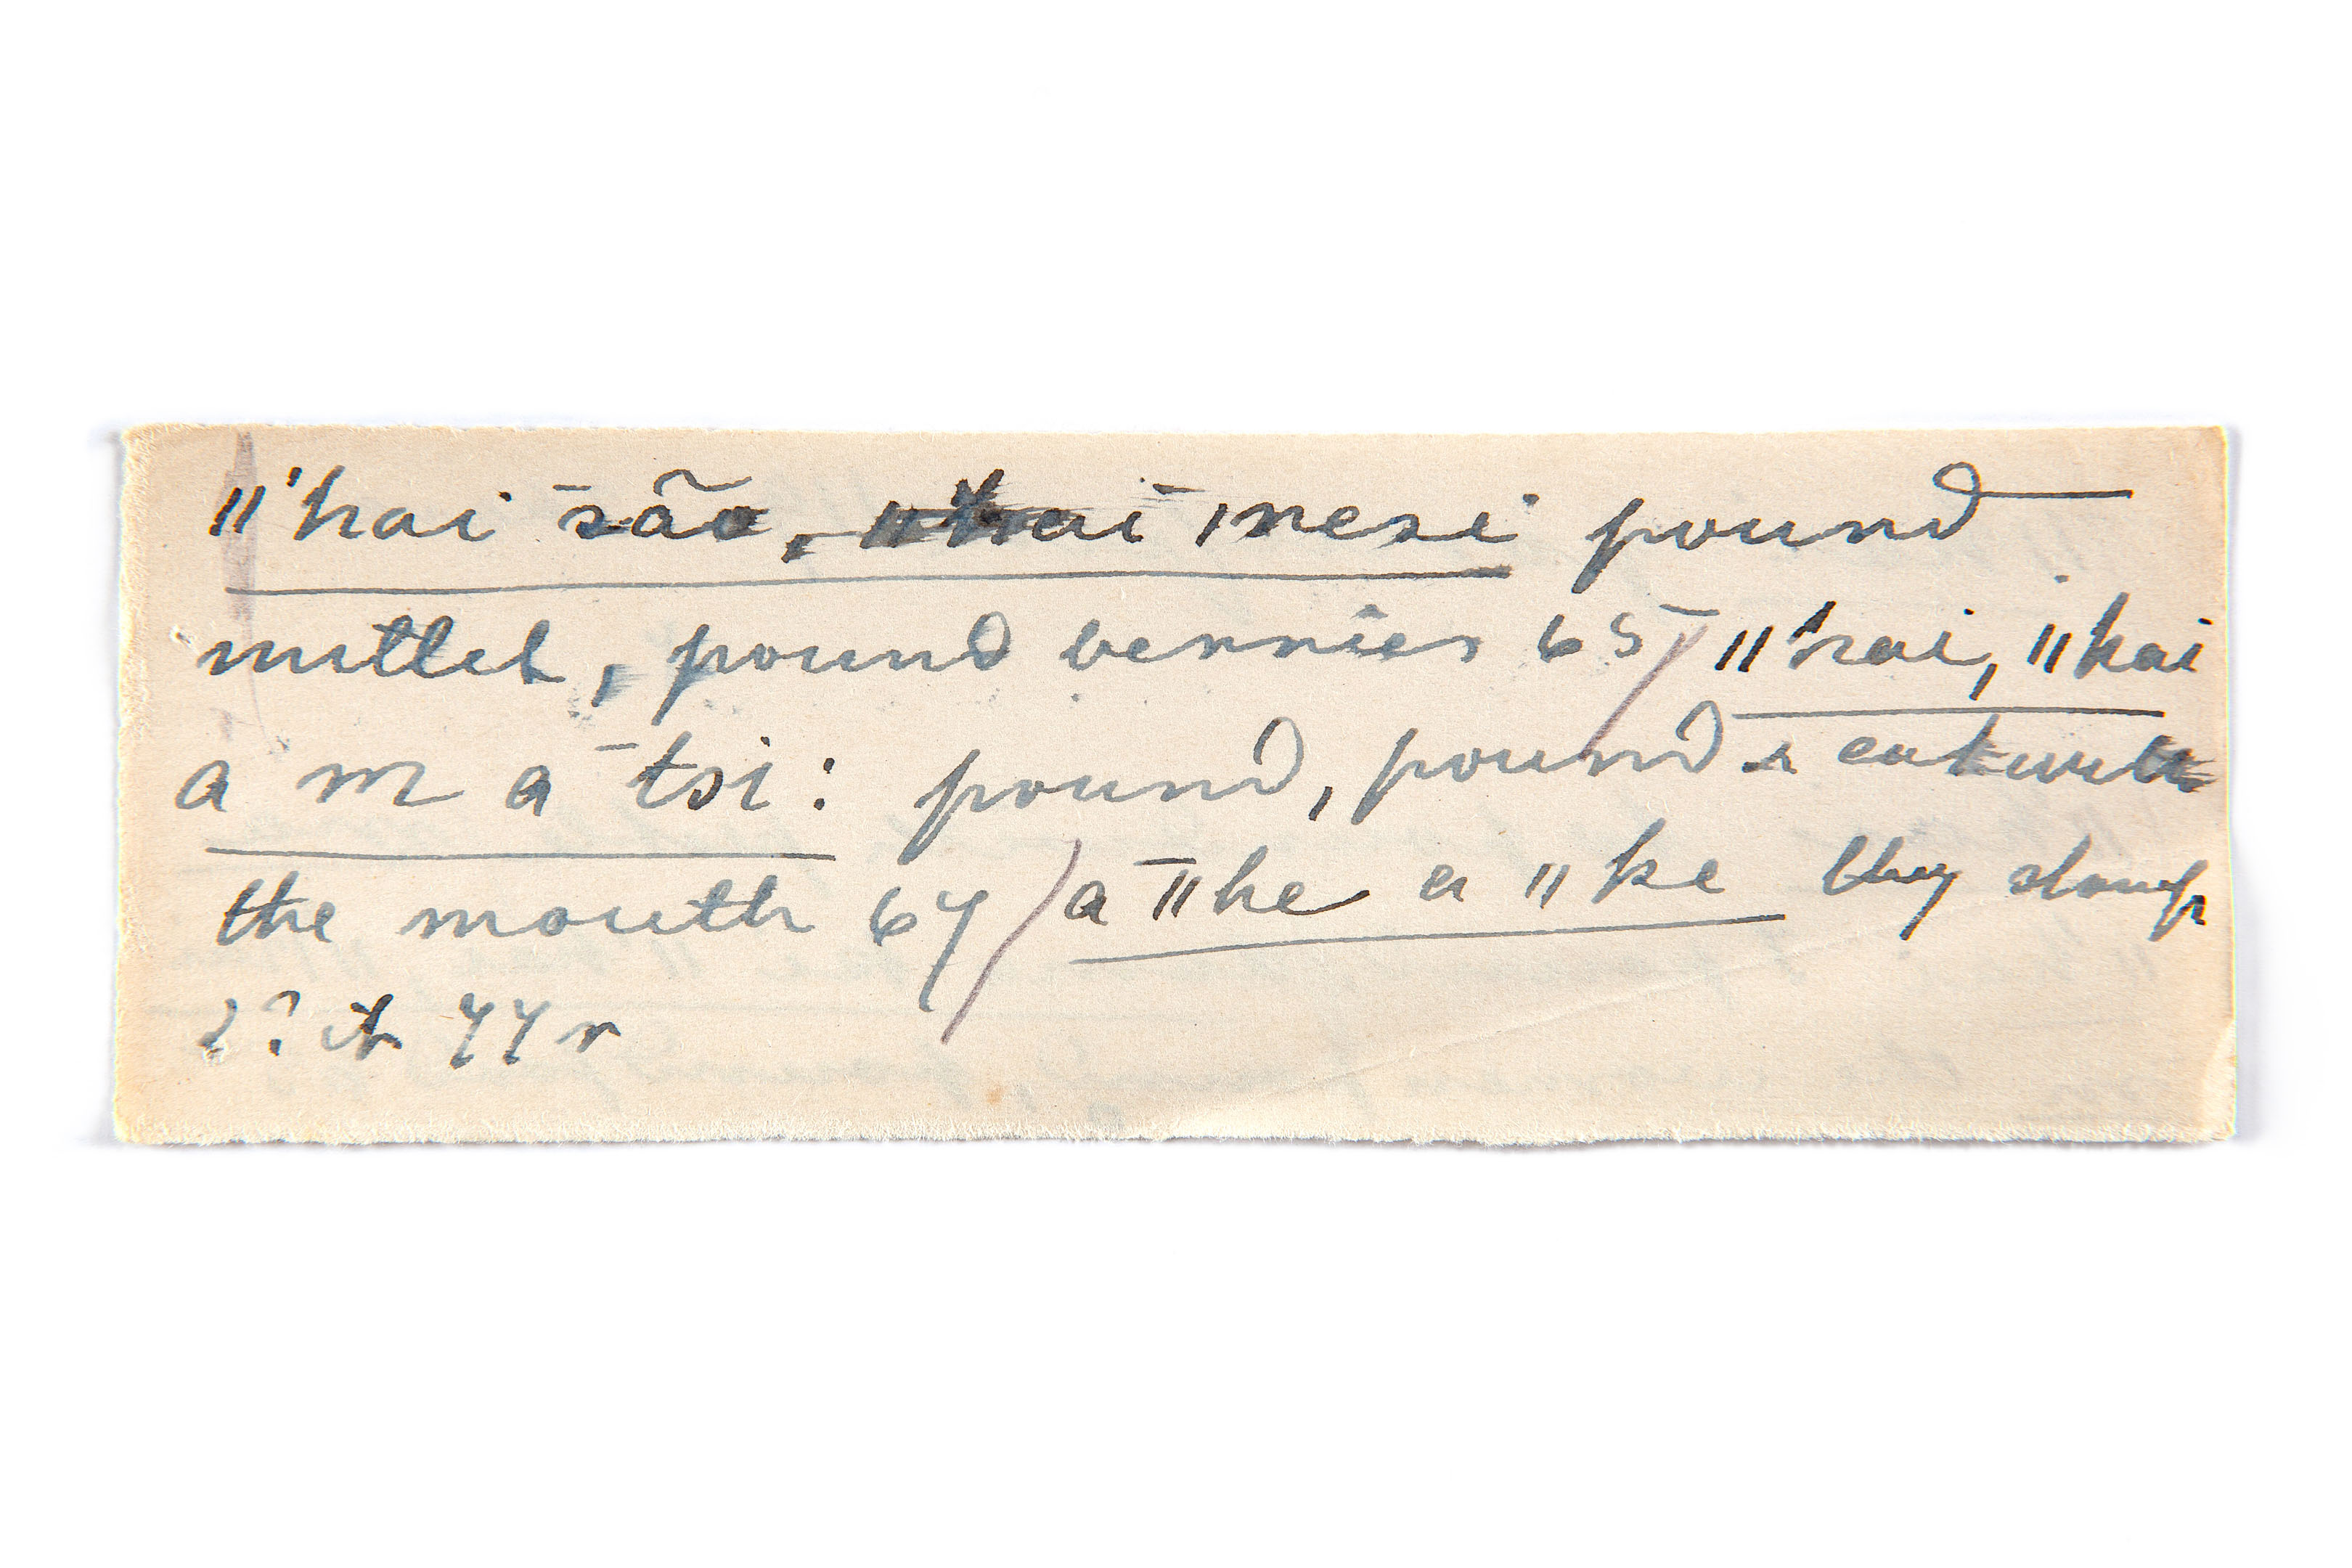 ǁ'hai ¯são, ǁhai ¯ ǀnesi pound
mttlet, pound berries 65 / ¯ǁhai, ǁhai
a m a ¯tsi: pound, pound & eat with
the mouth 67 / a ¯ǁhe a ǁke they stamp
2? it 77 r